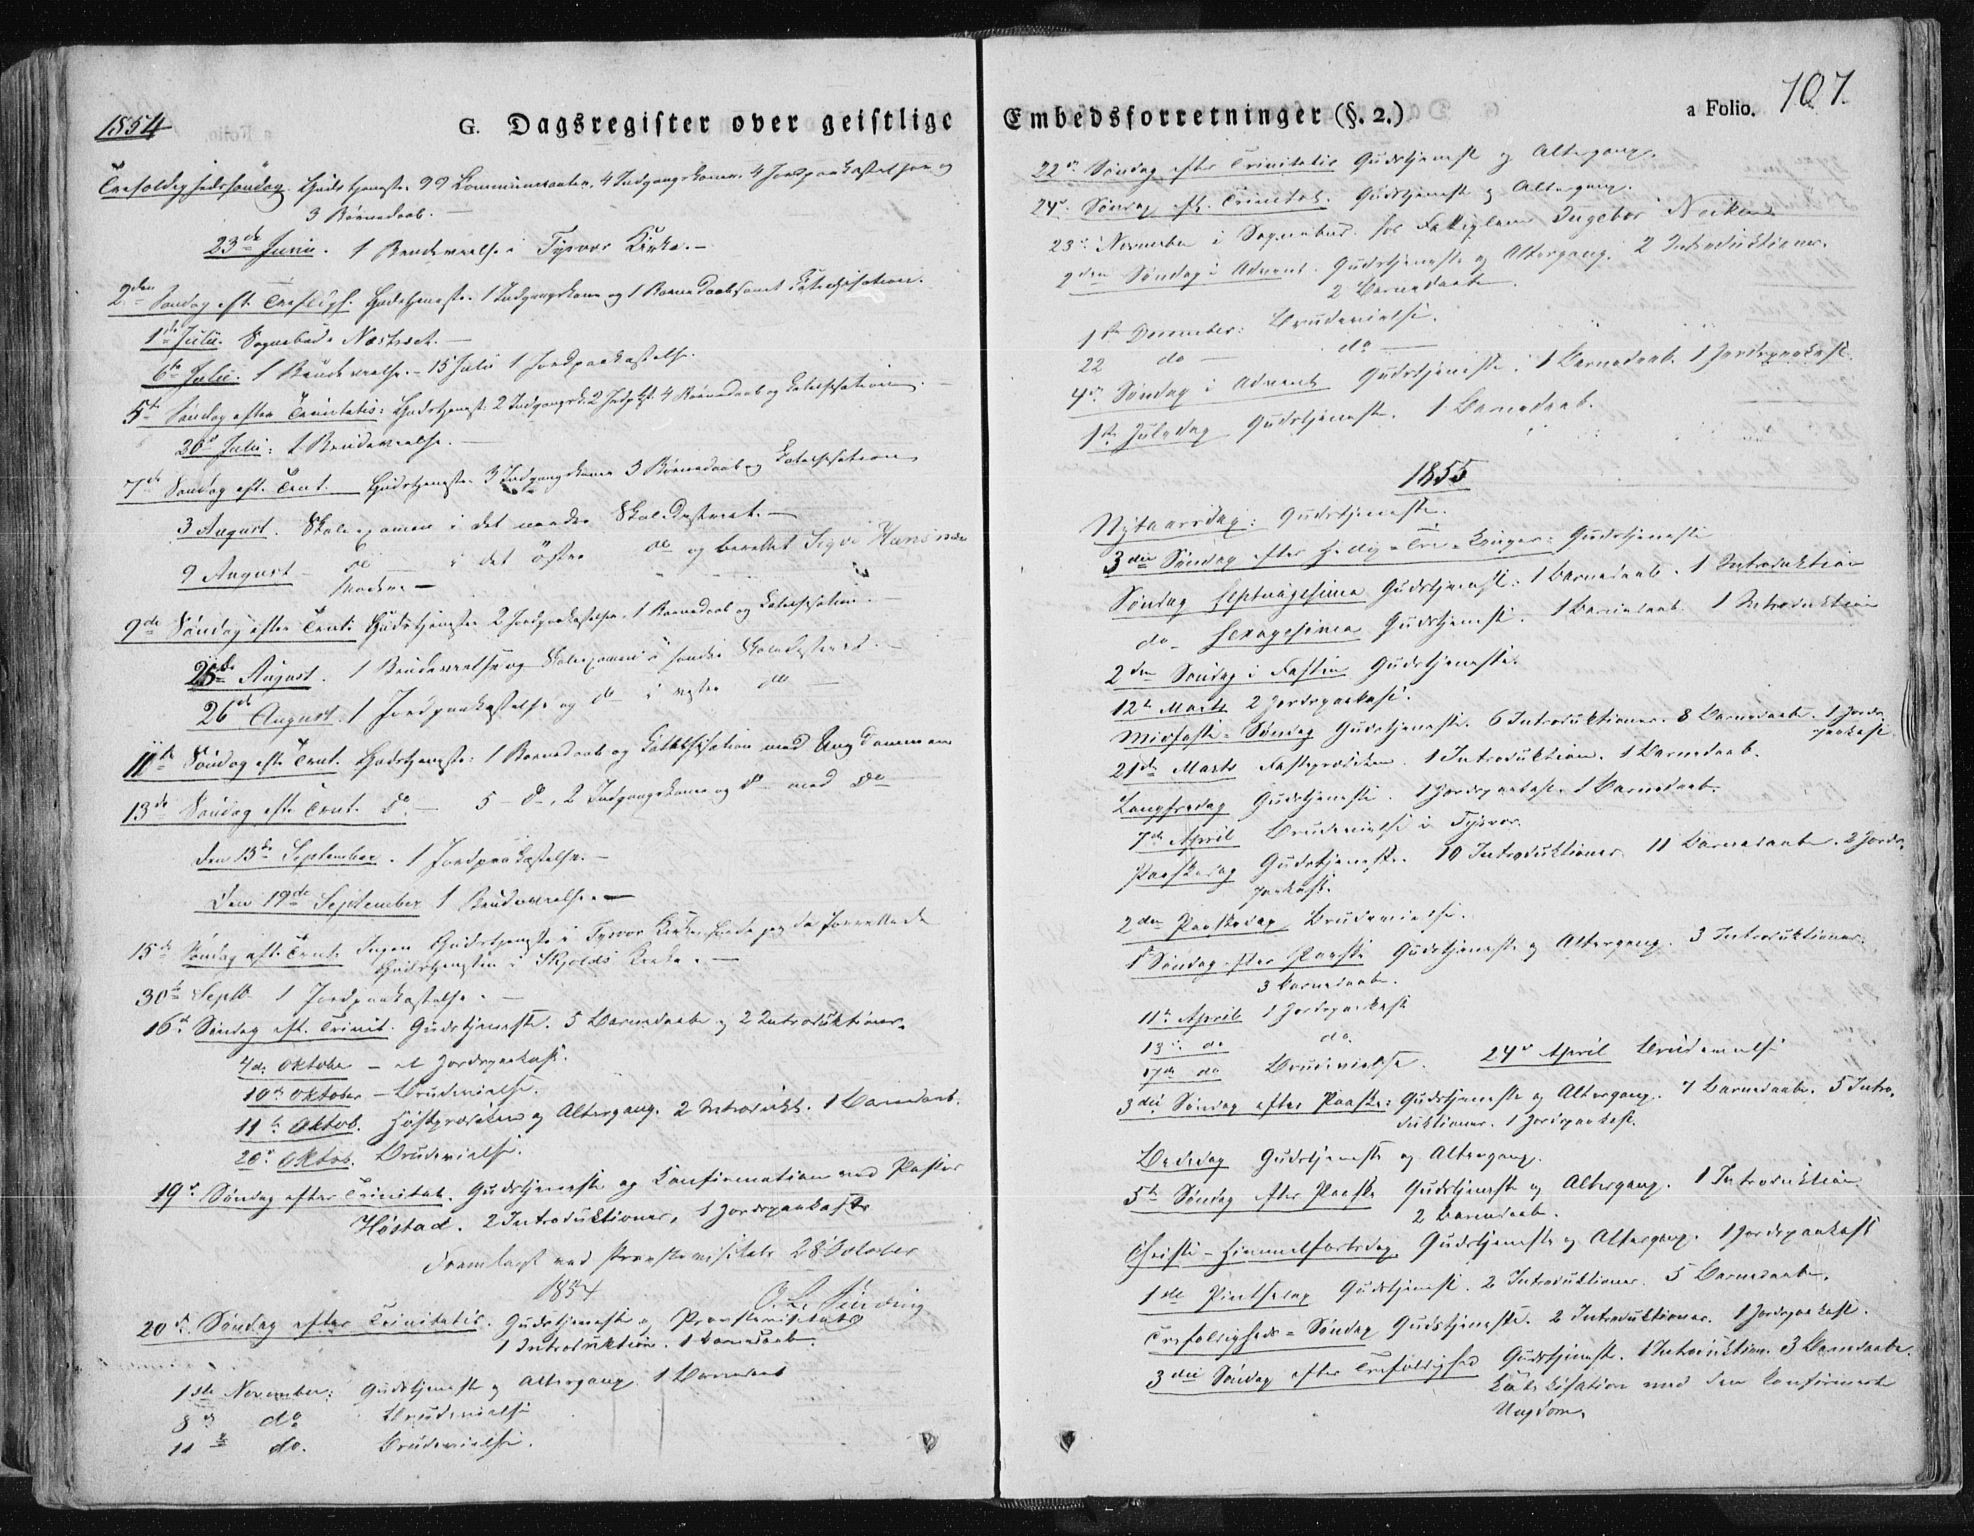 1854
G. Dagsregister over geistlige
Trefoldighedssøndag. Gudstjeneste 99 Communicanter, 4 Indgangskoner. 4 Jordpaakastelser og
3 Børnedaab. —
23de Junii. 1 Brudevielse i Tysvær Kirke. —
2den Søndag eft. Trefligh. Gudstjeneste. 1 Indgangskone og 1 Barnedaab samt Katechisation.
1ste Julii. Sognebud
6te Julii. 1 Brudevielse. — 15 Julii 1 Jordpaakastelse.
5te Søndag efter Trinitatis: Gudstjenest: 2 Indgangsk. 2 Jordpkst. 4 Børnedaab og Katechisation. —
20de Julii: 1 Brudevielse. —
7de Søndag eft. Trint. Gudstjeneste. 3 Indgangskoner 3 Børnedaab og Katechisation
3 August. Skoleexamen i det nordre Skoledistrict. —
9 August — do — i det østre do og berettet
9de Søndag efter Trint. Gudstjeneste 2 Jordpaakastelser. 1 Barnedaab og Katechisation. —
25de August. 1 Brudevielse og Skoleexamen i søndre Skoledistrict. —
26de August. 1 Jordpaakastelse og do i vestre do —
11te Søndag efter Trint. Gudstjeneste: 1 Barnedaab og Katechisation med Ungdommen
13de Søndag efter Trint. do. — 5 — do, 2 Indgangskoner og do med do
Den 13de September. 1 Jordpaakastelse. —
Den 19de September 1 Brudevielse. —
15de Søndag eft. Trint. Ingen Gudstjeneste i Tysvær Kirke, fordi jeg da forrettede
Gudstjenesten i Skjolds Kirke. —
30te Septb 1 Jordpaakastelse. —
16de Søndag eft. Trinit. Gudstjeneste. 5 Barnedaabe og 2 Introduktioner.
4de Oktober — et Jordspaakast.
10de Oktober — Brudevielse.
11te Oktob. Høstprædiken og Altergang. 2 Introdukt. 1 Barnedaab.
20de Oktob. Brudevielse.
19de Søndag efter Trinitat. Gudstjeneste og Konfirmation ved Pastor
Høstad. 2 Introduktioner, 1 Jordspaakast
Fremlagt ved Provstevisitats 28 October
1854
O. L. Sinding
20de Søndag efter Trinitatis. Gudstjeneste og Provstevisitats
1 Introduktion. 1 Barnedaab.
1ste November: Gudstjeneste og Altergang. 1 Barnedaab
8de do Brudevielse
11te do. Brudevielse.
Embedsforretninger (§. 2.)
a Folio. 107.
22de Søndag efter Trinitatis Gudstjeneste og Altergang.
24de Søndag eft. Trinitat. Gudstjeneste og Altergang.
23de November i Sognebud for Ingebor
2den Søndag i Advent. Gudstjeneste og Altergang. 2 Introduktioner.
2 Barnedaabe.
1ste December: Brudevielse.
22 do — do —
4de Søndag i Advent Gudstjeneste. 1 Barnedaab. 1 Jordspaakast.
1ste Juledag Gudstjeneste. 1 Barnedaab.
1855
Nytaarsdag: Gudstjeneste.
3die Søndag efter Hellig-Tre-Konger: Gudstjeneste
Søndag Septuagesima Gudstjeneste. 1 Barnedaab. 1 Introduktion
do Sexagesima Gudstjeneste. 1 Barnedaab. 1 Introduktion
2den Søndag i Fasten Gudstjeneste.
12te Marts 2 Jordspaakast.
Midfaste-Søndag Gudstjeneste. 6 Introduktioner. 8 Barnedaabe. 1 Jords-
paakast.
21de Marts Fasteprædiken. 1 Introduktion. 1 Barnedaab.
Langfredag Gudstjeneste. 1 Jordspaakast. 1 Barnedaab.
7de April Brudevielse i Tysvær.
Paaskedag Gudstjeneste. 10 Introduktioner 11 Barnedaabe. 2 Jords-
paakast.
2den Paaskedag Brudevielse.
1 Søndag efter Paaske Gudstjeneste og Altergang. 3 Introduktioner.
3 Barnedaabe.
11te April 1 Jordspaakast
13de do do.
17de do Brudevielse. 24de April Brudevielse
3die Søndag efter Paaske: Gudstjeneste og Altergang. 7 Barnedaabe. 5 Intro-
duktioner. 1 Jordspaakast.
Bededag Gudstjeneste og Altergang.
5te Søndag efter Paaske Gudstjeneste og Altergang. 1 Introduktion
2 Barnedaab.
Christi-Himmelfartsdag. Gudstjeneste og Altergang. 1 Jordspaakast
1ste Pintsedag Gudstjenest. 2 Introduktioner. 5 Barnedaabe.
Trefoldigheds-Søndag Gudstjeneste. 2 Introduktioner. 1 Jordspaakast.
3die Søndag efter Trefoldighed Gudstjeneste. 1 Introduktion. 3 Barnedaabe.
Katekisation med den konfirmerte
Ungdom.